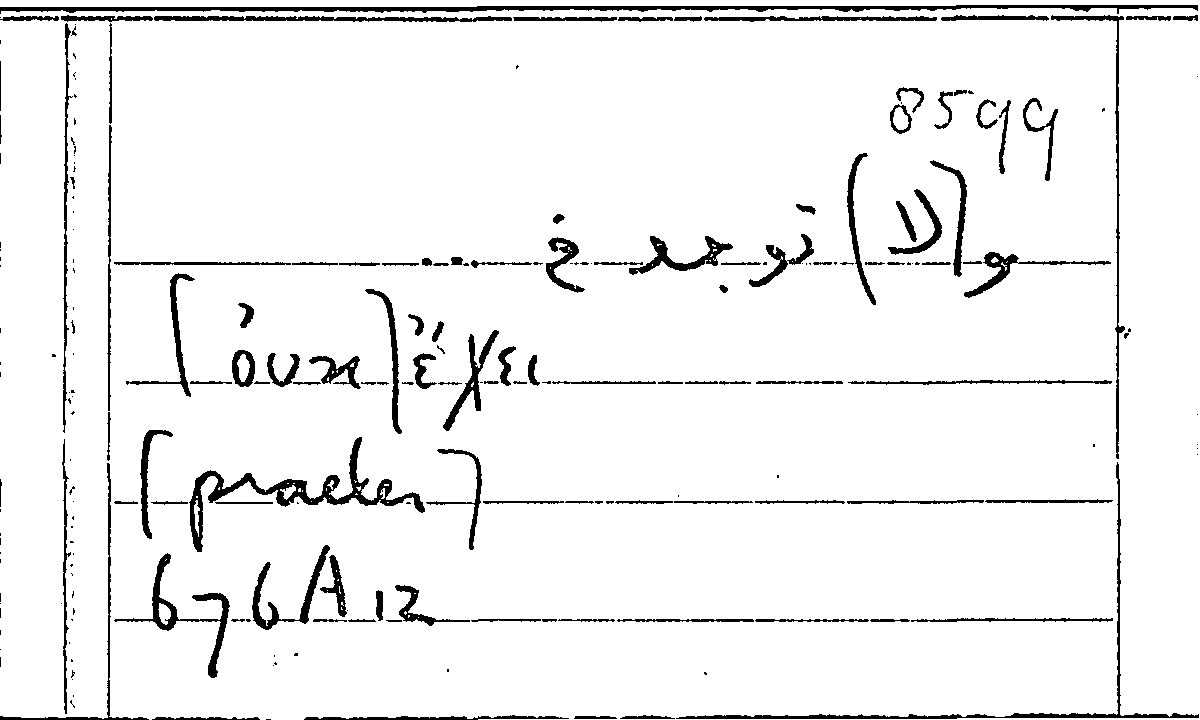 8599
و(لا) توجد خ ...
[ὀυκ] ἔχει
[praeter]
676A12